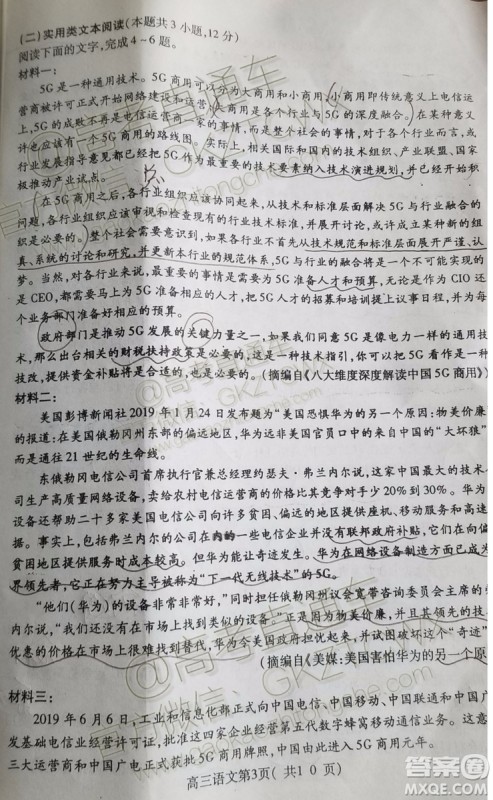 (二)实用类文本阅读(本题共3小题,12分)
阅读下面的文字,完成4~6题。
材料一:
5G是一种通用技术。5G商用可以分为大商用和小商用,小商用即传统意义上电信运
营商被许可正式开始网络建设和运营,大商用是各个行业与5G的深度融合。在某种意义
上,5G的成败不再是电信运营商一家的事情,而是整个社会的事情,对于各个行业而言,或
许也应该有一个5G商用的路线图。实际上,国际和国内的技术组织、产业联盟、国家和
行业发展指导意见都已经把5G作为最重要的技术要素纳入技术演进规划,并已经开始积
极推动产业试点。
在5G商用之后,各行业组织应该协同起来,从技术和标准层面解决5G与行业的融合的
问题,各行业组织应该审视和检查现有的行业技术标准,并展开讨论,或许成立某种新的组
织是必要的。整个社会需要意识到,如果不能从技术和标准规范层面开展严谨、认
真、系统的讨论和研究,并更新本行业的规范体系,5G与行业的融合将是一个不可能实现的
梦。当然,对各行业来说,最重要的事情是需要为5G准备人才和预算,无论是作为CIO还
是CEO,都需要马上为5G准备相应的人才,把5G人才的招募和培训提上议事日程,并为每
个业务部门准备好相应的预算。
政府部门是推动5G发展的关键力量之一,如果我们坚信5G是像电力一样的通用技
术,那么出台相关的财税扶持政策是必要的,这是一种技术指引,今天你可以把5G看作是一种
科技改, 提供资金补贴将是合适的。(摘编自《八大维度深度解读中国5G商用》)
材料二:
美国彭博新闻社2019年1月24日发布题为“美国恐惧华为的另一个原因:物美价廉
的报道:在美国俄勒冈州东部的偏远地区,华为远不是美国官员眼中来自中国的“大坏狼”
而是通往21世纪的生命线。
东俄勒冈电信公司首席执行官兼总经理约瑟夫·弗兰内尔说,这家中国最大的技术
司生产高质量网络设备,卖给农村电信运营商的价格比其竞争对手少20%到30%。华为
设备还帮助二十多家美国电信公司向许多贫困、偏远的地区提供座机、移动服务和高速
事实上,包括弗兰内尔的公司在内的一些电信公司并没有联邦政府补贴,它们在向
贫困地区提供服务时成本较高。但华为能让奇迹发生。华为在网络设备制造方面已成为
界领先者,它正在努力主导被称为“下一代无线技术”的5G。
“他们(华为)的设备非常非常好,”同时履任俄勒冈州议会宽带咨询委员会委员
内尔说,“我们没有在市场上找到类似的设备。”正是因为物美价廉,并且其领先的技
优惠的价格在市场上都很难找到替代,华为今美国政府担忧起来,并试图破坏这一个“奇迹”
(摘编自《美媒:美国害怕华为的另一个原
材料三:
2019年6月6日,工业和信息化部正式向中国电信、中国移动、中国联通和中国广
发基础电信业经营许可证,批准这四家企业经营第五代数字蜂窝移动通信业务。
三大运营商和中国广电正式获批5G商用牌照,中国由此进入5G商用元年。
高三语文第3页(共10页)